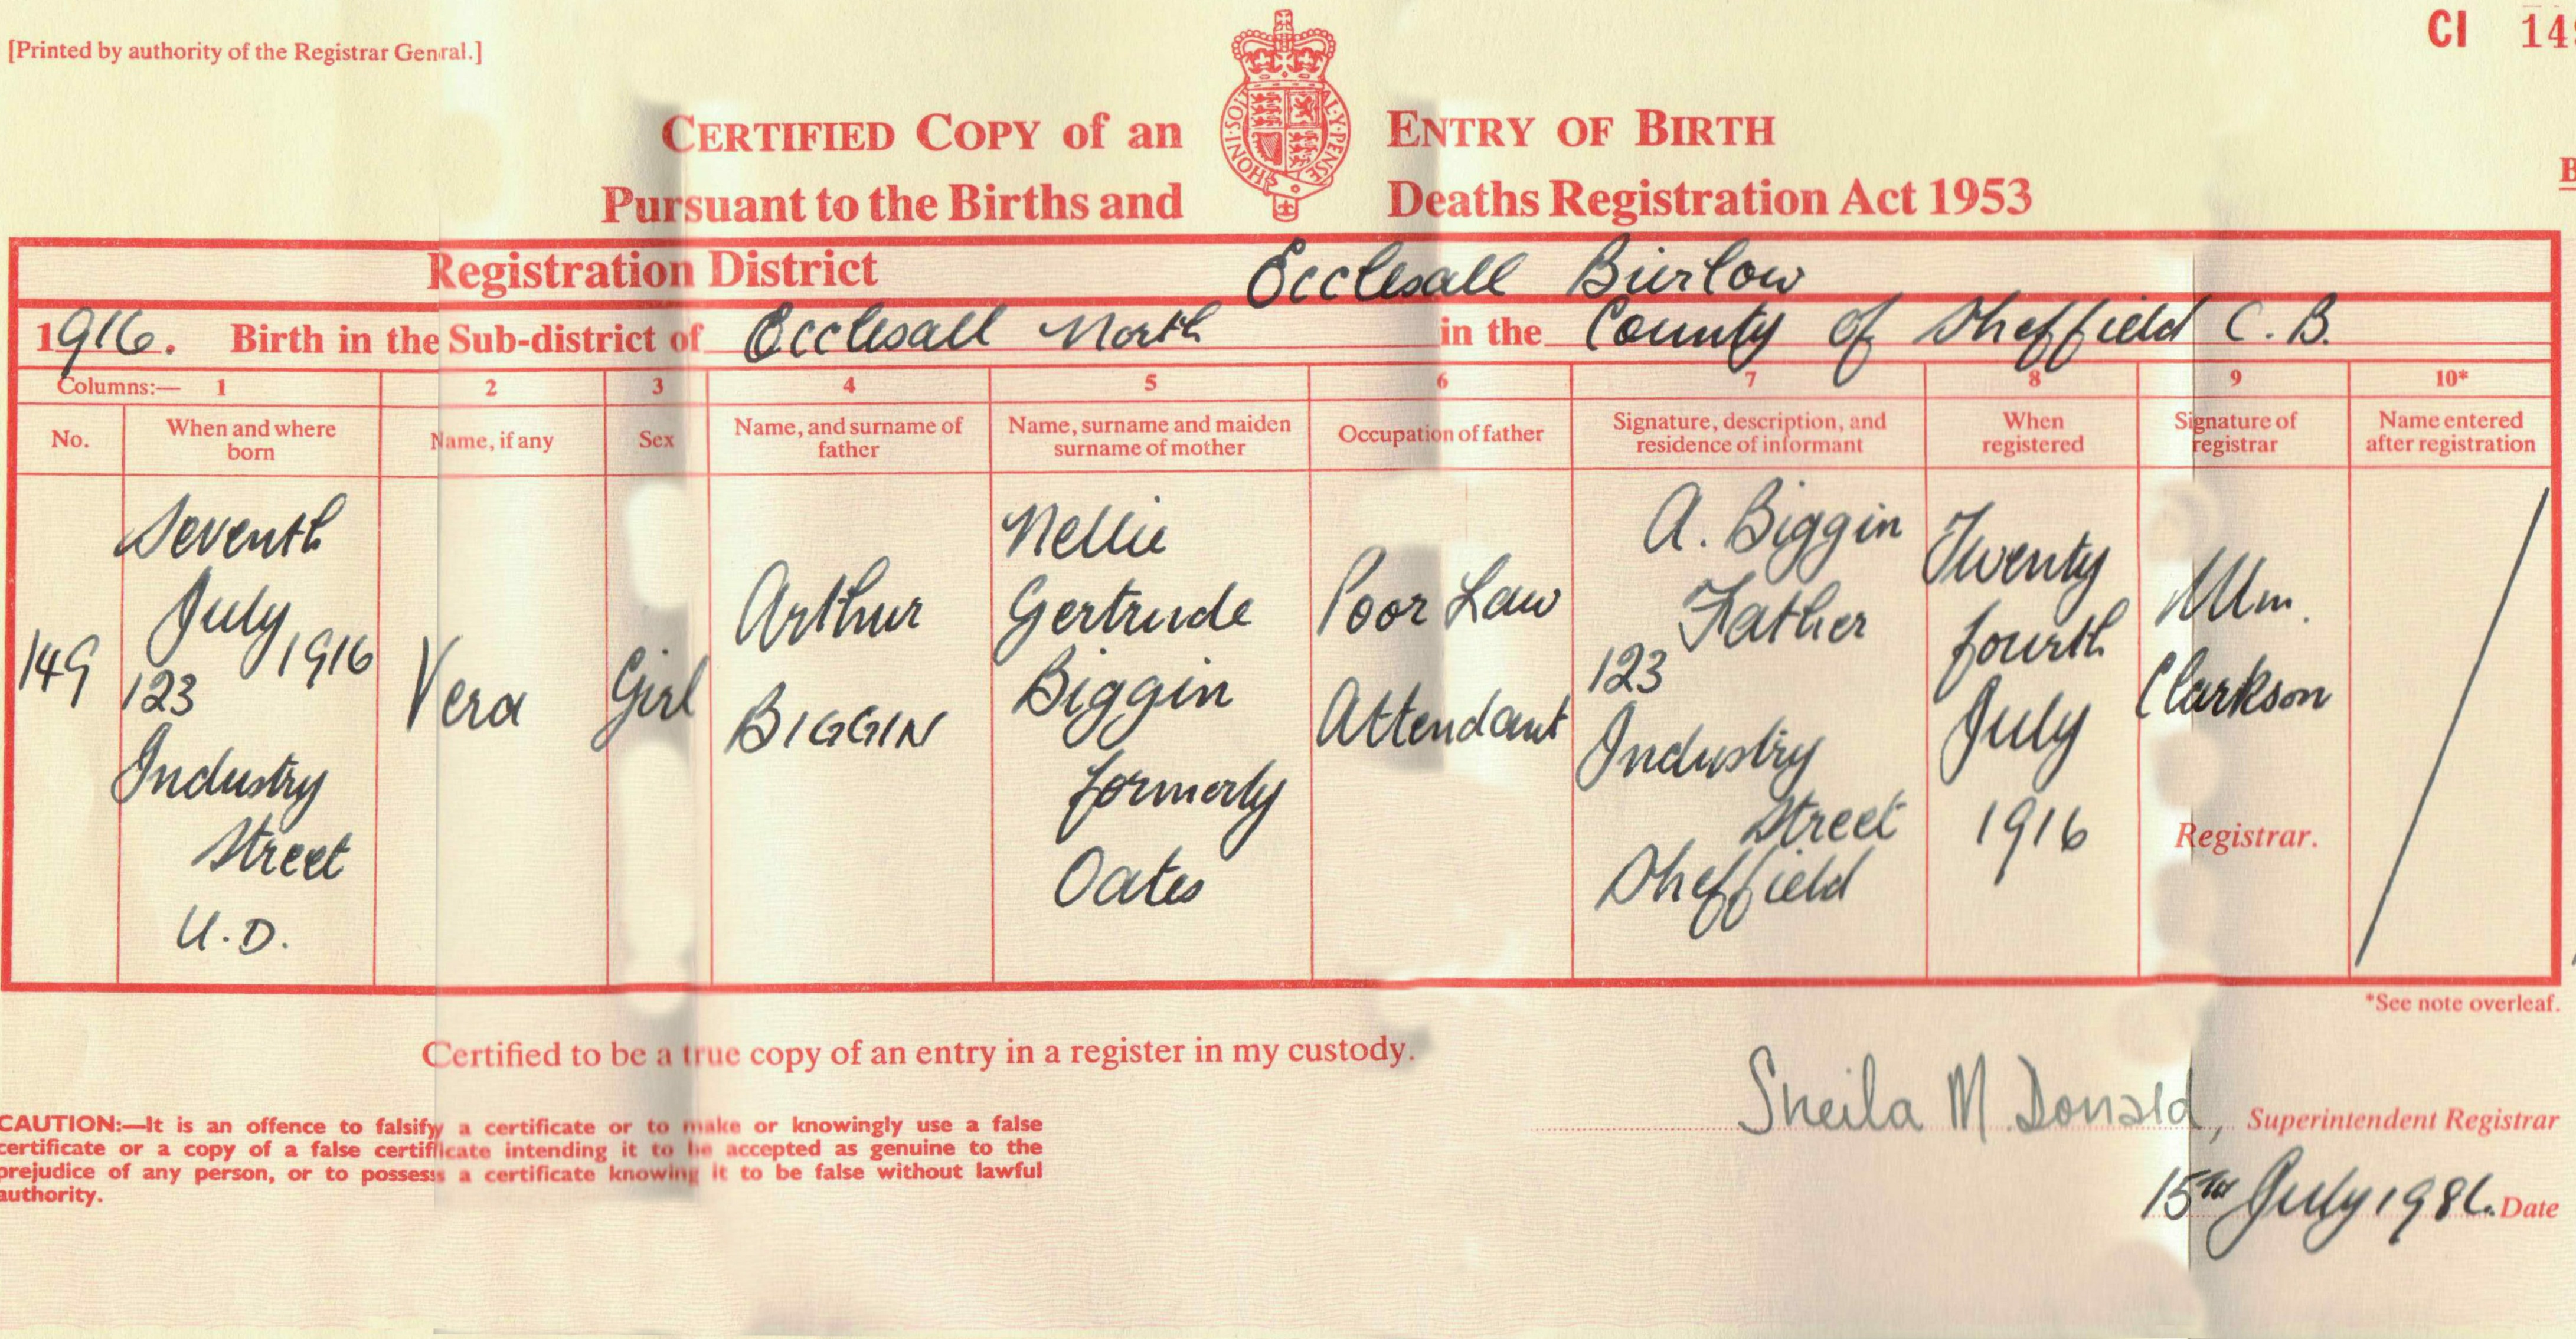 [Printed by authority of the Registrar General.]
CI 14
CERTIFIED COPY of an ENTRY OF BIRTH
HONI·SOIT AL·Y·PENSE
Pursuant to the Births and Deaths Registration Act 1953
B
Registration District Ecclesall Bierlow
1916. Birth in the Sub-district of Ecclesall North in the County of Sheffield C.B.
Columns:— 1 2 3 4 5 6 7 8 9 10*
No.
When and where
born
Name, if any
Sex
Name, and surname of
father
Name, surname and maiden
surname of mother
Occupation of father
Signature, description, and
residence of informant
When
registered
Signature of
registrar
Name entered
after registration
149
Seventh
July
1916
123
Industry
Street
U.D.
Vera
Girl
Arthur
BIGGIN
Nellie
Gertrude
Biggin
formerly
Oates
Poor Law
Attendant
A. Biggin
Father
123
Industry
Street
Sheffield
Twenty
fourth
July
1916
Wm.
Clarkson
Registrar.
*See note overleaf.
Certified to be a true copy of an entry in a register in my custody.
Sheila M. Donald, Superintendent Registrar
CAUTION:—It is an offence to falsify a certificate or to make or knowingly use a false
certificate or a copy of a false certificate intending it to be accepted as genuine to the
prejudice of any person, or to possess a certificate knowing it to be false without lawful
authority.
15TH July 1986. Date